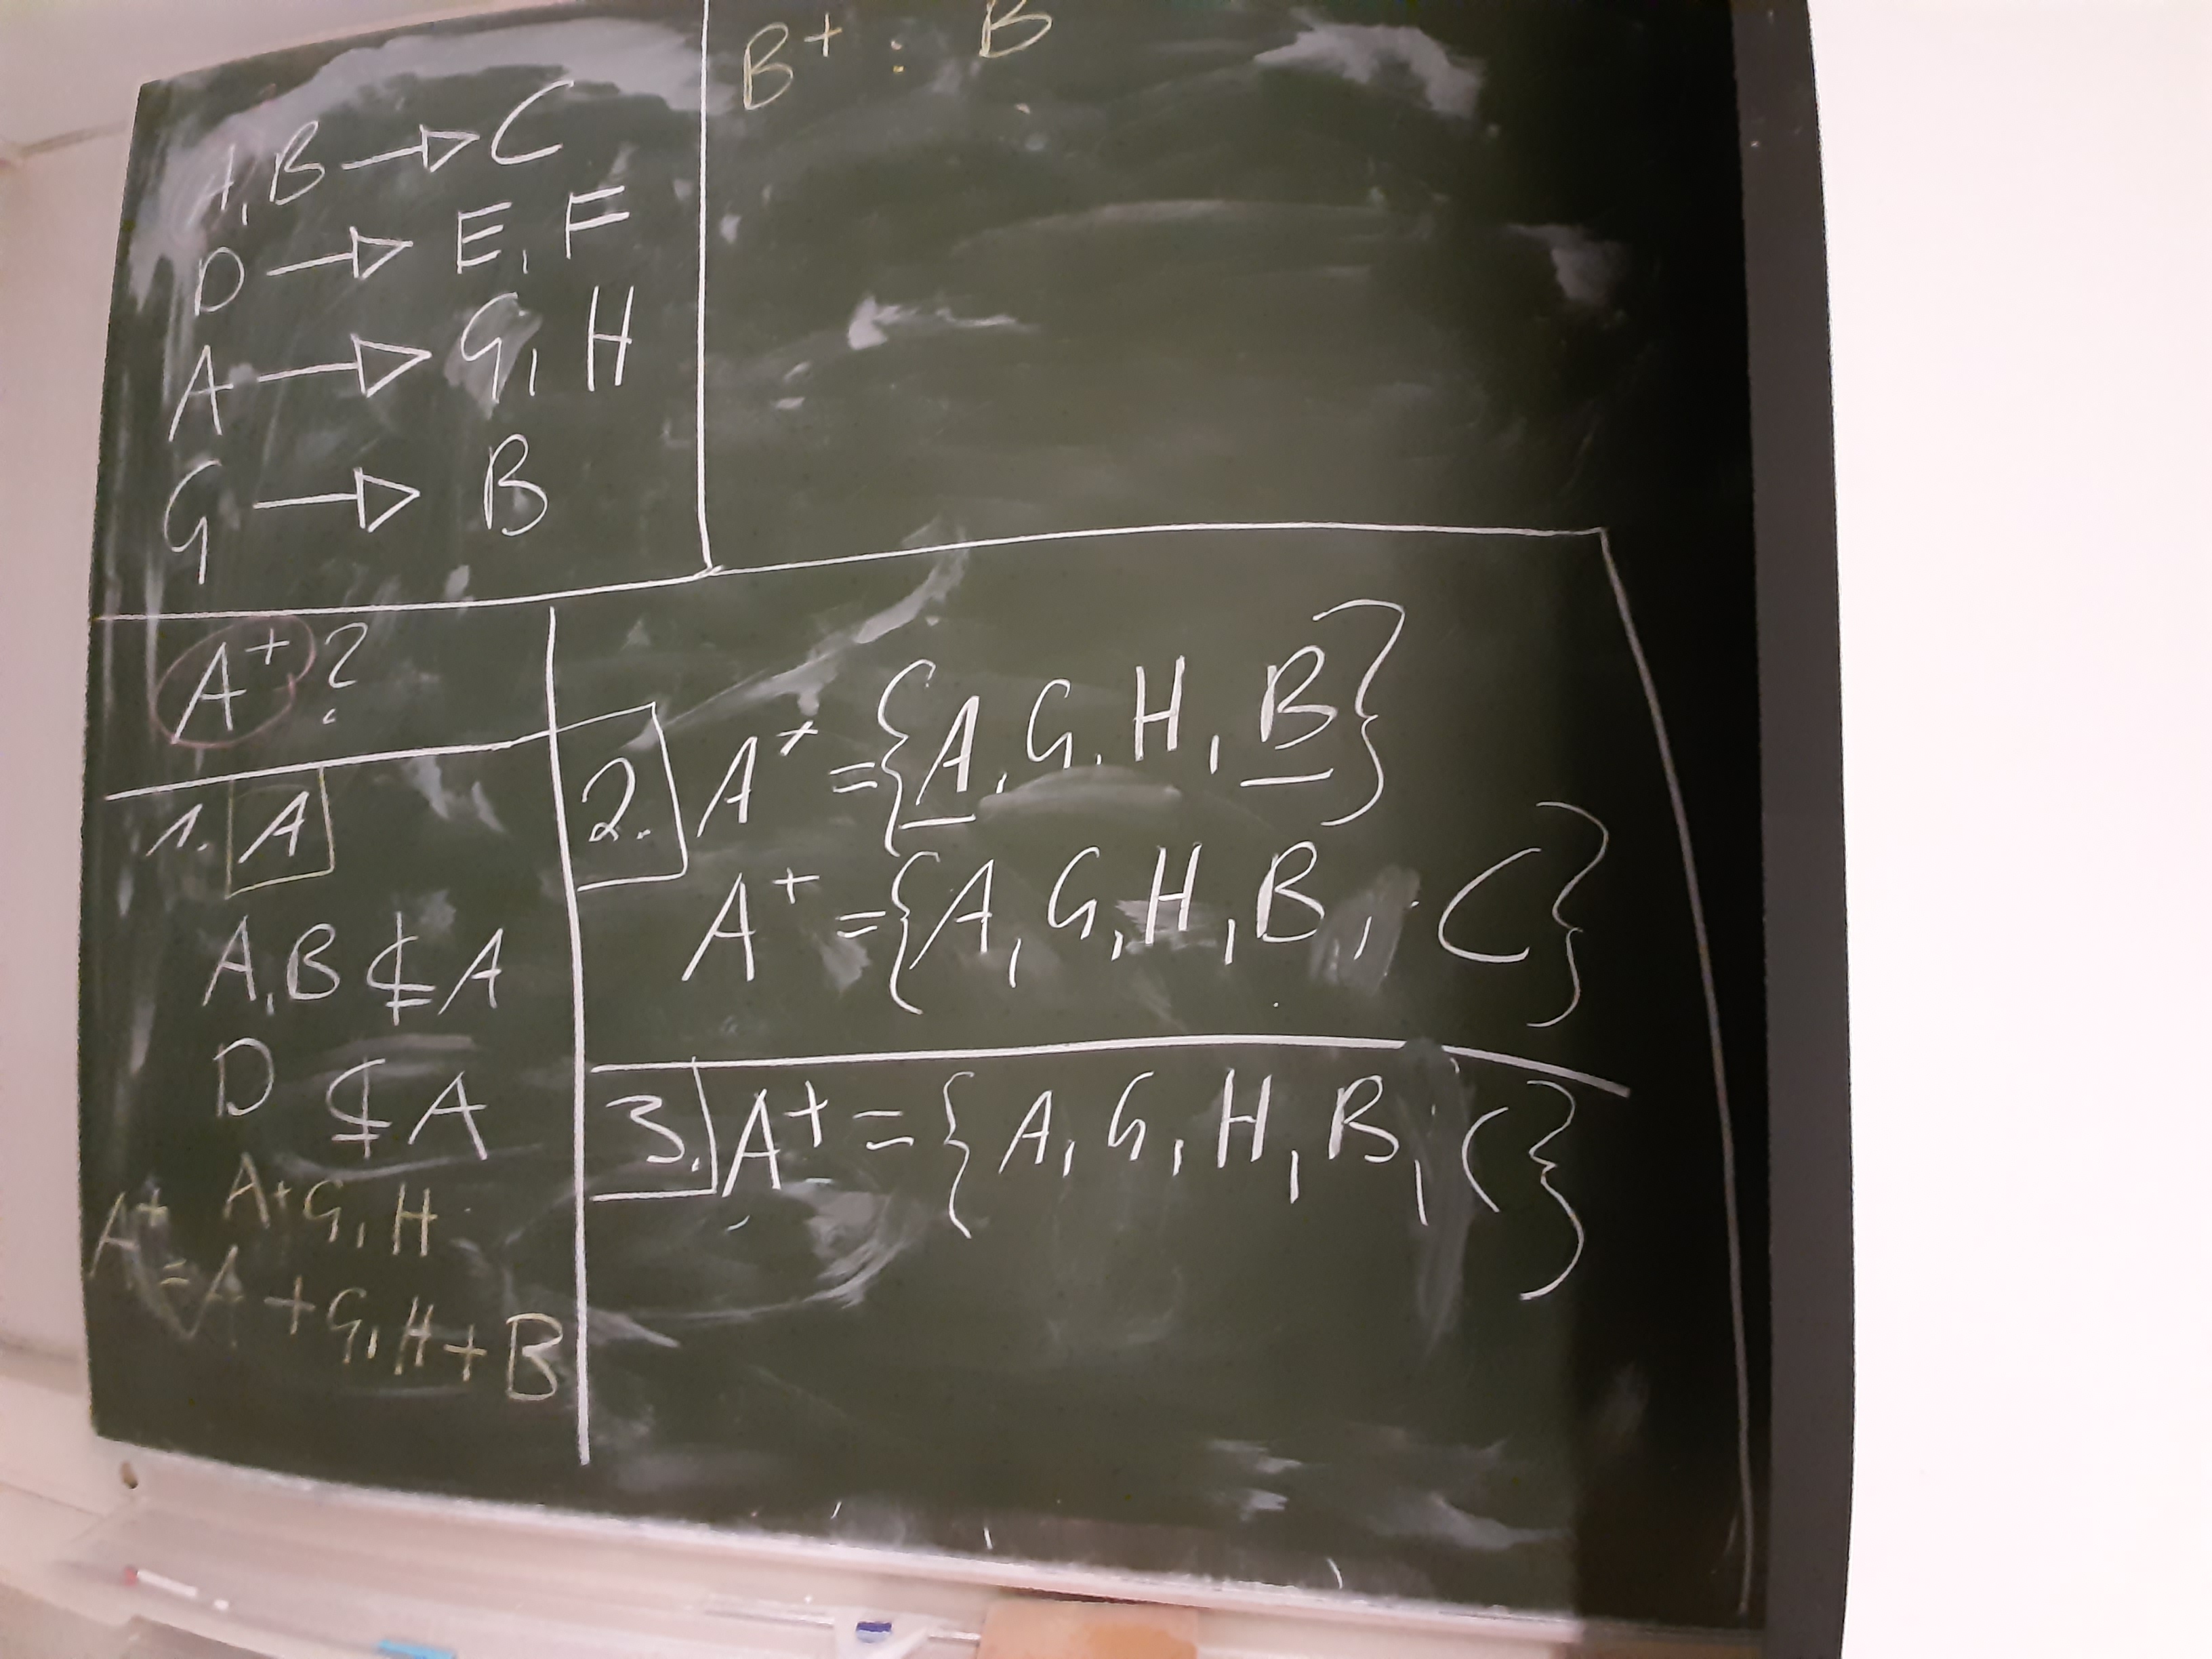 A,B → C
D → E, F
A → G, H
G → B
B+ : B
A+ ?
1. A
A,B ⊄ A
D ⊄ A
A+G,H
A+ = A + G,H + B
2. A+ = {A, G, H, B}
A+ = {A, G, H, B, C}
3. A+ = {A, G, H, B, C}